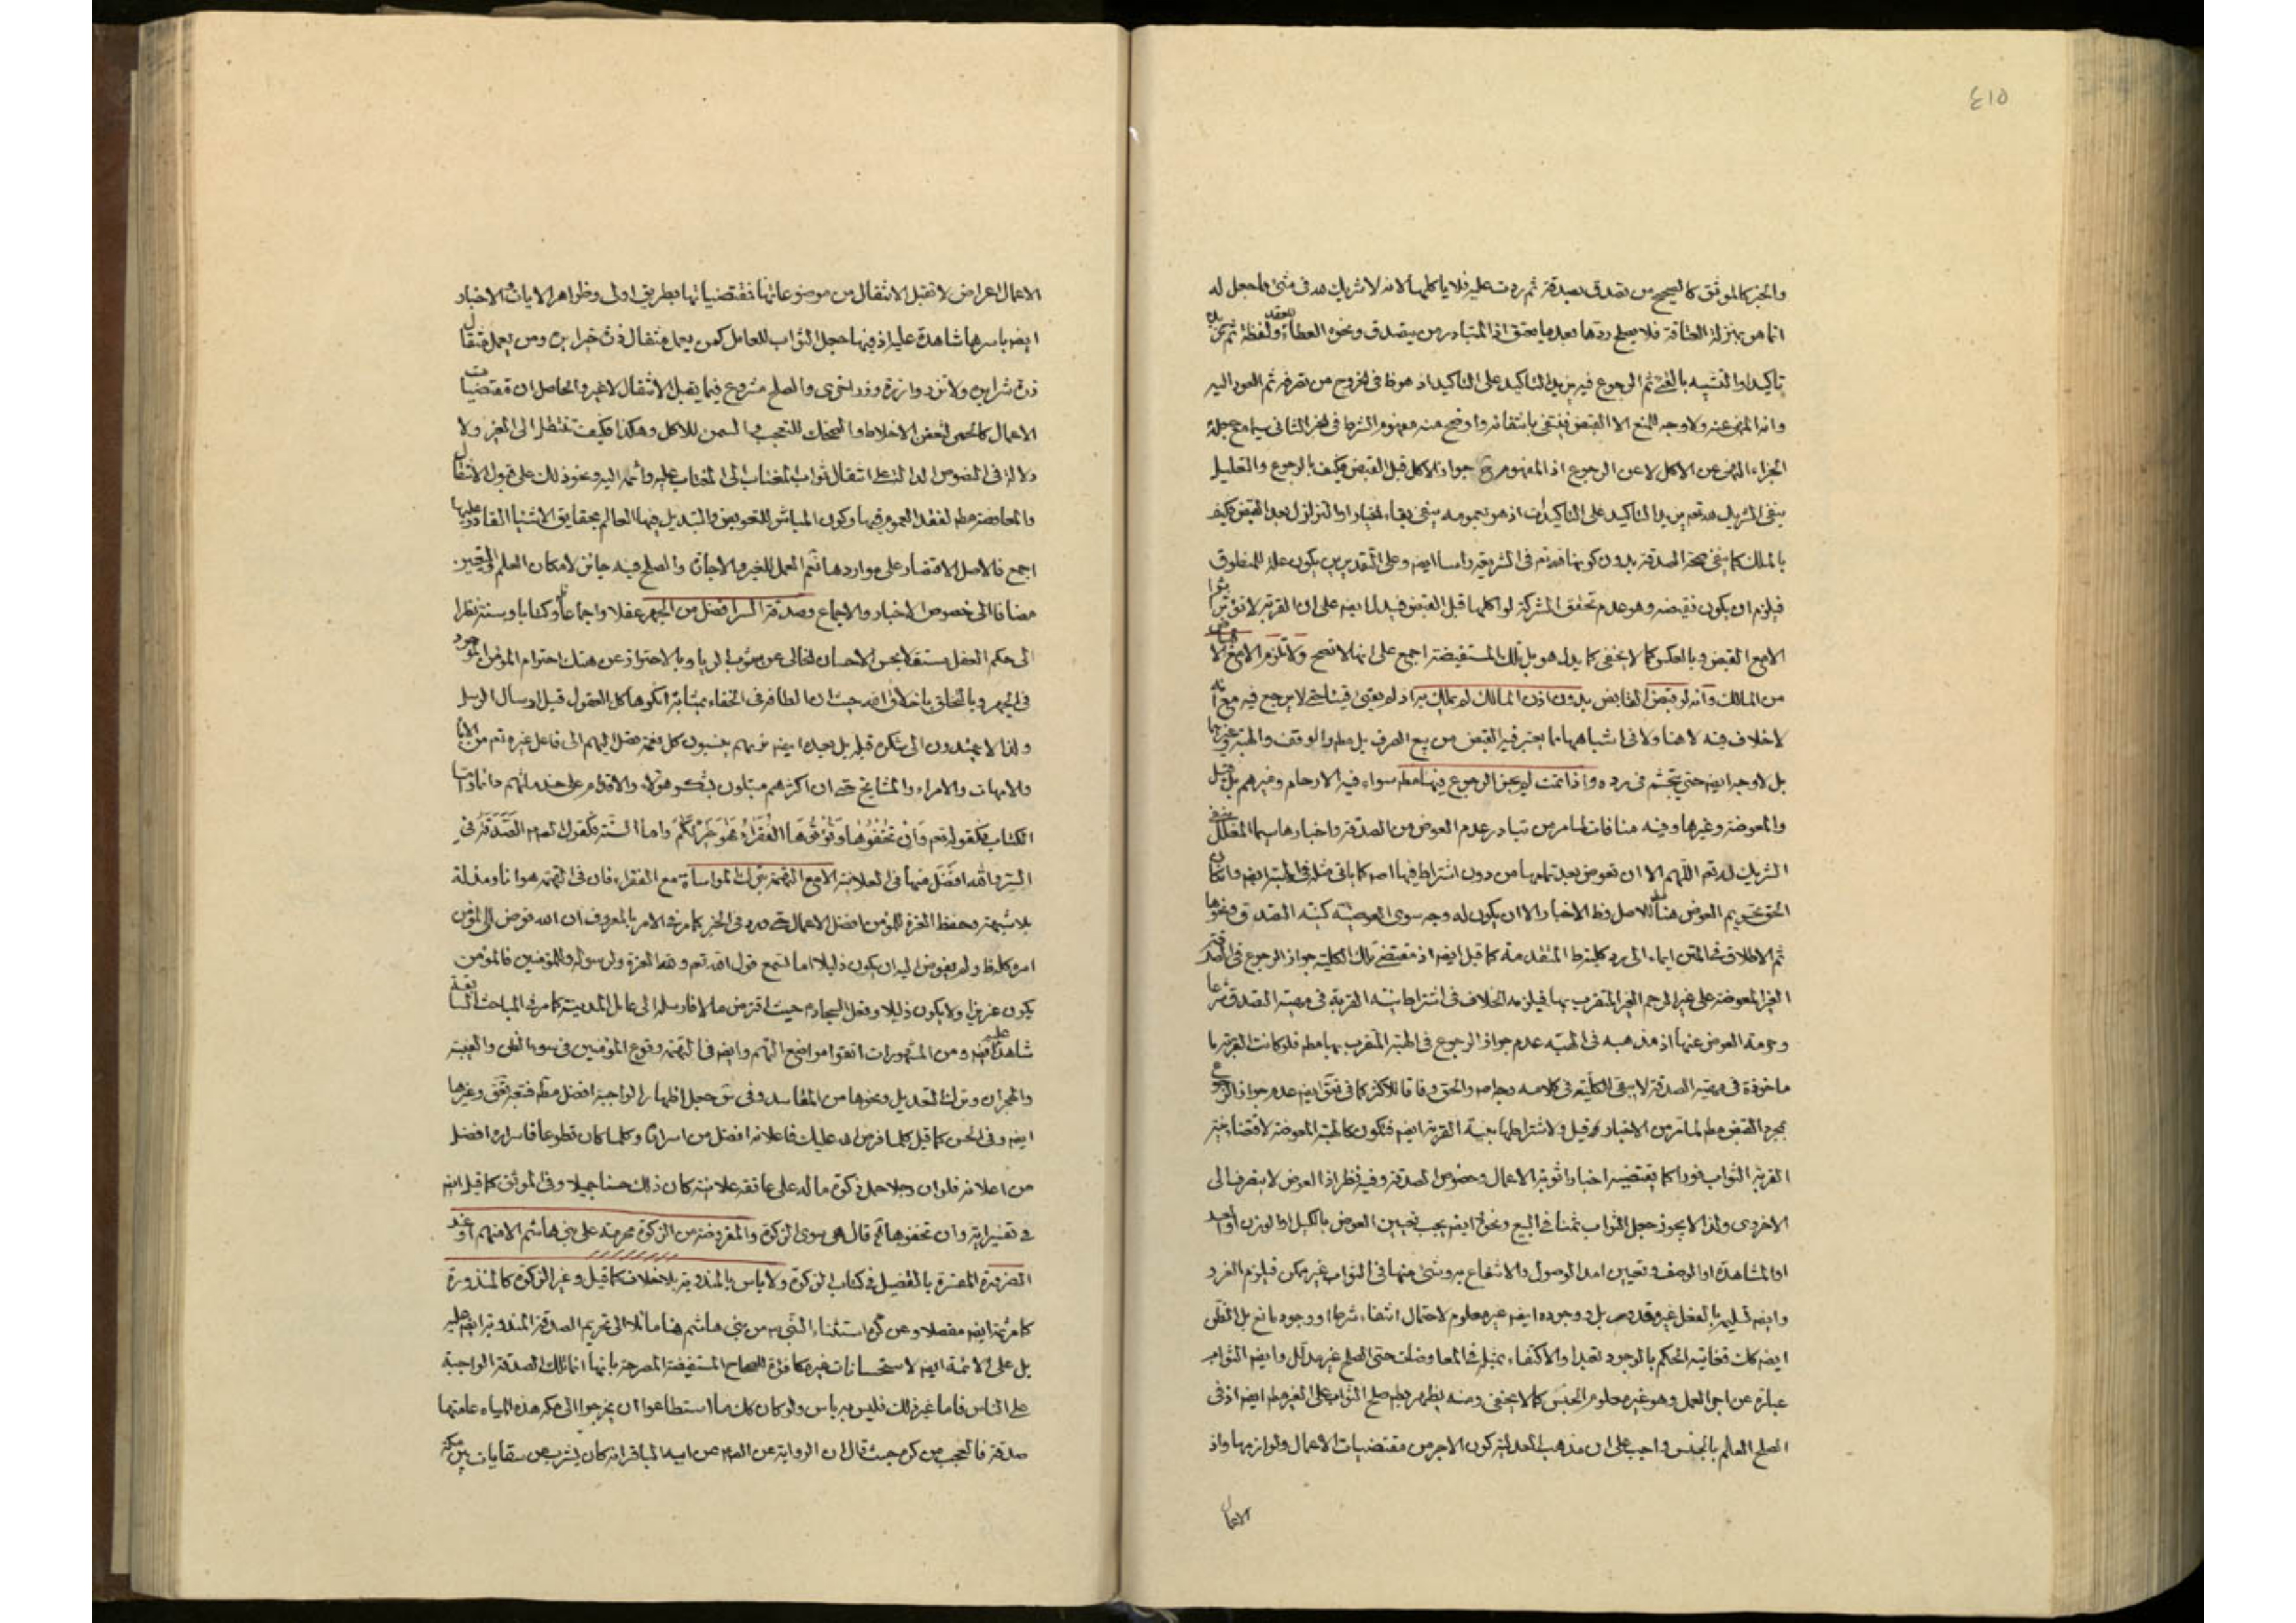 ٤١٥
والخبر كالموثق كالصحيح من تصدق بصدقة ثم ردت عليه فلا ياكلها لانه لا شريك لله في شئ مما جعل له
انما هو بمنزلة العتاقة فلا يصلح ردها بعد ما يعتق اذ المتبادر من يتصدق ونحوه العطاء ولفظة ثم
تاكيدا والتشبيه بالقئ ثم الرجوع فيه يزيد التاكيد على التاكيد اذ هو ظ في الخروج من تصرفه ثم العود اليه
وانه المنهى عنه ولا وجه للمنع الا القبض فينتفى بانتفائه واوضح منه مفهوم الشرط في الخبر الثاني سيما مع جعله
الجزاء النهى عن الاكل لا عن الرجوع اذ المفهوم ح جواز الاكل قبل القبض فكيف بالرجوع والتعليل
بنفى الشريك لله تعم يزيد التاكيد على التاكيدات اذ هو بعمومه ينفى بقاء الخيار او التزلزل بعد القبض فكيف
بالملك كما ينفى صحة الصدقة بدون كونها لله تعم في الشريعة راسا ايضه وعلى التقديرين يكون علة للمنطوق
فيلزم ان يكون نقيضه وهو عدم تحقق الشركة لو اكلها قبل القبض قيد لما ايضه على ان القربة لا تؤثر
الا مع القبض وبالعكس كما لا يخفى كما يدل هو بل تلك المستفيضة اجمع على انها لا تصح ولا تلزم الا مع
من المالك وانه لو قبض القابض بدون اذن المالك لم يملك به اذ لم يعتن قبضا حتى لا يرجع فيه مع انه
لا خلاف فيه لا هنا ولا في اشباهها مما يعتبر فيه القبض من بيع الصرف بل مطم والوقف والهبة وغيرها
بل لا وجه ايضه حتى يتجشم في رده واذا تمت لم يجز الرجوع فيها مطم سواء فيه الارحام وغيرهم بل قيل
والمعوضة وغيرها وفيه منافات لما مر من تبادر عدم العوض من الصدقة واخبارها سيما المعلل بنفى
الشريك لله تعم اللهم الا ان تعوض بعد تمامها من دون اشتراط فيها اصم كما ياتى مثله في الهبة ايضه وان كان
الحق تحريم العوض هنا للاصل وظ الاخبار الا ان يكون له وجه سوى العوضية كنية التصدق ونحوها
ثم الاطلاق في المتن ايماء الى رد كلية ط المتقدمة كما قيل ايضه اذ مقتضى تلك الكلية جواز الرجوع في الصدقة
الغير المعوضة على غير الرحم الغير المتقرب بها فيلزمه الخلاف في اشتراط نية القربة في مهية التصدق شرعا
وحرمة العوض عنها اذ مذهبه في الهبة عدم جواز الرجوع في الهبة المتقرب بها مطم فلو كانت القربة
ماخوذة في مهية الصدقة لا يبقى الكلية في كلامه والحق وفاقا للاكثر كما في فق ايضه عدم جواز الرجوع
بمجرد القبض مطم لما مر من الاخبار وقيل ولاشتراطها بنية القربة ايضه فتكون كالهبة المعوضة لاقتضاء نية
القربة الثواب فورا كما يقتضيه اخبار اثوبة الاعمال وخصوص الصدقة وفيه نظر اذ العوض لا ينصرف الى
الاخروى ولذا لا يجوز جعل الثواب ثمنا في البيع ونحوه ايضه يجب تعيين العوض بالكيل او الوزن او العد
او المشاهدة او الوصف وتعيين امد الوصول والانتفاع به وشئ منها في الثواب غير ممكن فيلزم الغرر
وايضه تسليمه بالفعل غير مقدور بل ووجوده ايضه غير معلوم لاحتمال انتفاء شرط او وجود مانع بل الظنى
ايضه كك فغايته الحكم بالوجود تعبدا والاكتفاء بمثله في المعاوضات حتى الصلح غير مدلل وايضه الثواب
عبارة عن اجر العمل وهو غير معلوم الجنس كما لا يخفى ومنه يظهر بطم صلح الثواب على الغير مطم ايضه اذ في
الصلح العالم بالجنس واجب على ان مذهب العدلية كون الاجر من مقتضيات الاعمال ولوازمها واذ
الاعمال
الاعمال اعراض لا تقبل الانتقال من موضوعاتها فمقتضياتها بطريق اولى وظواهر الايات والاخبار
ايضه باسرها شاهدة عليه اذ فيها جعل الثواب للعامل كمن يعمل مثقال ذرة خيرا يره ومن يعمل مثقال
ذرة شرا يره ولا تزر وازرة وزر اخرى والصلح مشروع فيما يقبل الانتقال لا غير والحاصل ان مقتضيات
الاعمال كالحمى لتعفن الاخلاط والضحك للتعجب والسمن للاكل وهكذا فكيف تنتقل الى الغير ولا
دلالة في النصوص الدالة على انتقال ثواب المغتاب الى المغتاب عليه واثمه اليه ونحو ذلك على قبول الانتقال
والمعاوضة مطم لفقد العموم فيها وكون المباشر للتعويض والتبديل فيها العالم بحقايق الاشياء القادر عليها
اجمع فالاصل الاقتصار على مواردها نعم العمل للغير والاجارة والصلح فيه جائز لامكان العلم والتعيين
مضافا الى خصوص الاخبار والاجماع وصدقة السر افضل من الجهر عقلا واجماعا وكتابا وسنة نظرا
الى حكم العقل مستقلا بحسن الاحسان الخالى عن شوب الريا وبالاحتراز عن هتك احترام المؤمن الموجود
في الجهر وبالتخلق باخلاق الله حيث ان الطافه في الخفاء بمثابة انكرها كل العقول قبل ارسال الرسل
ولذا لا يهتدون الى شكره قبله بل بعده ايضه تريهم ينسبون كل نعمة تصل اليهم الى فاعل غيره تعم من الاباء
والامهات والامراء والمشايخ حتى ان اكثرهم مبتلون بشكر هؤلاء والاقدام على خدماتهم واما
الكتاب فكقوله تعم وَاِنْ تُخْفُوهَا وَتُؤْتُوهَا الْفُقَرَاءَ فَهُوَ خَيْرٌ لَكُمْ واما السنة فكقول الصم الصَّدَقَةُ في
السر والله افضل منها في العلانية الا مع التهمة بترك المواساة مع الفقراء فان في التهمة هوانا ومذلة
بلا شبهة وحفظ العزة للمؤمن افضل الاعمال حتى ورد في الخبر كما مر في الامر بالمعروف ان الله فوض الى المؤمن
امره كله ولم يفوض اليه ان يكون ذليلا اما تسمع قول الله تعم ولله العزة ولرسوله وللمؤمنين فالمؤمن
يكون عزيزا ولا يكون ذليلا وفعل السجاد م حيث اقترض مالا فارسله الى عامل المدينة كما مر في المباحث السابقة
شاهد عليه ايضه ومن المشهورات اتقوا مواضع التهم وايضه في التهمة وقوع المؤمنين في سوء الظن والغيبة
والهجران وترك التعديل ونحوها من المفاسد وفي ق جعل اظهار الواجبة افضل مطم فتعم وغيرها
ايضه وفي الحسن كما قيل كلما فرض الله عليك فاعلانه افضل من اسراره وكلما كان تطوعا فاسراره افضل
من اعلانه فلو ان رجلا حمل زكوة ماله على عاتقه علانية كان ذلك حسنا جميلا وفي الموثق كما قيل ايضه
في تفسير اية وان تخفوها اه قال هى سوى الزكوة والمفروضة من الزكوة محرمة على بنى هاشم الا منهم او عند
الضرورة المفسرة بالتفصيل في كتاب الزكوة ولا باس بالمندوبة بلا خلاف كما قيل وغير الزكوة كالمنذورة
كما مر ثمة ايضه مفصلا وعن كره استثناء النبى ص من بنى هاشم هنا مائلا الى تحريم الصدقة المندوبة ايضه عليه
بل على الائمة ايضه لاستحسانات غير مكافئة للصحاح المستفيضة المصرحة بانها انما تلك الصدقة الواجبة
على الناس فاما غير ذلك فليس به باس ولو كان كك ما استطاعوا ان يخرجوا الى مكة هذه المياه عامتها
صدقة فالعجب من كره حيث قال ان الرواية عن الصم عن ابيه الباقر انه كان يشرب من سقايات بين مكة